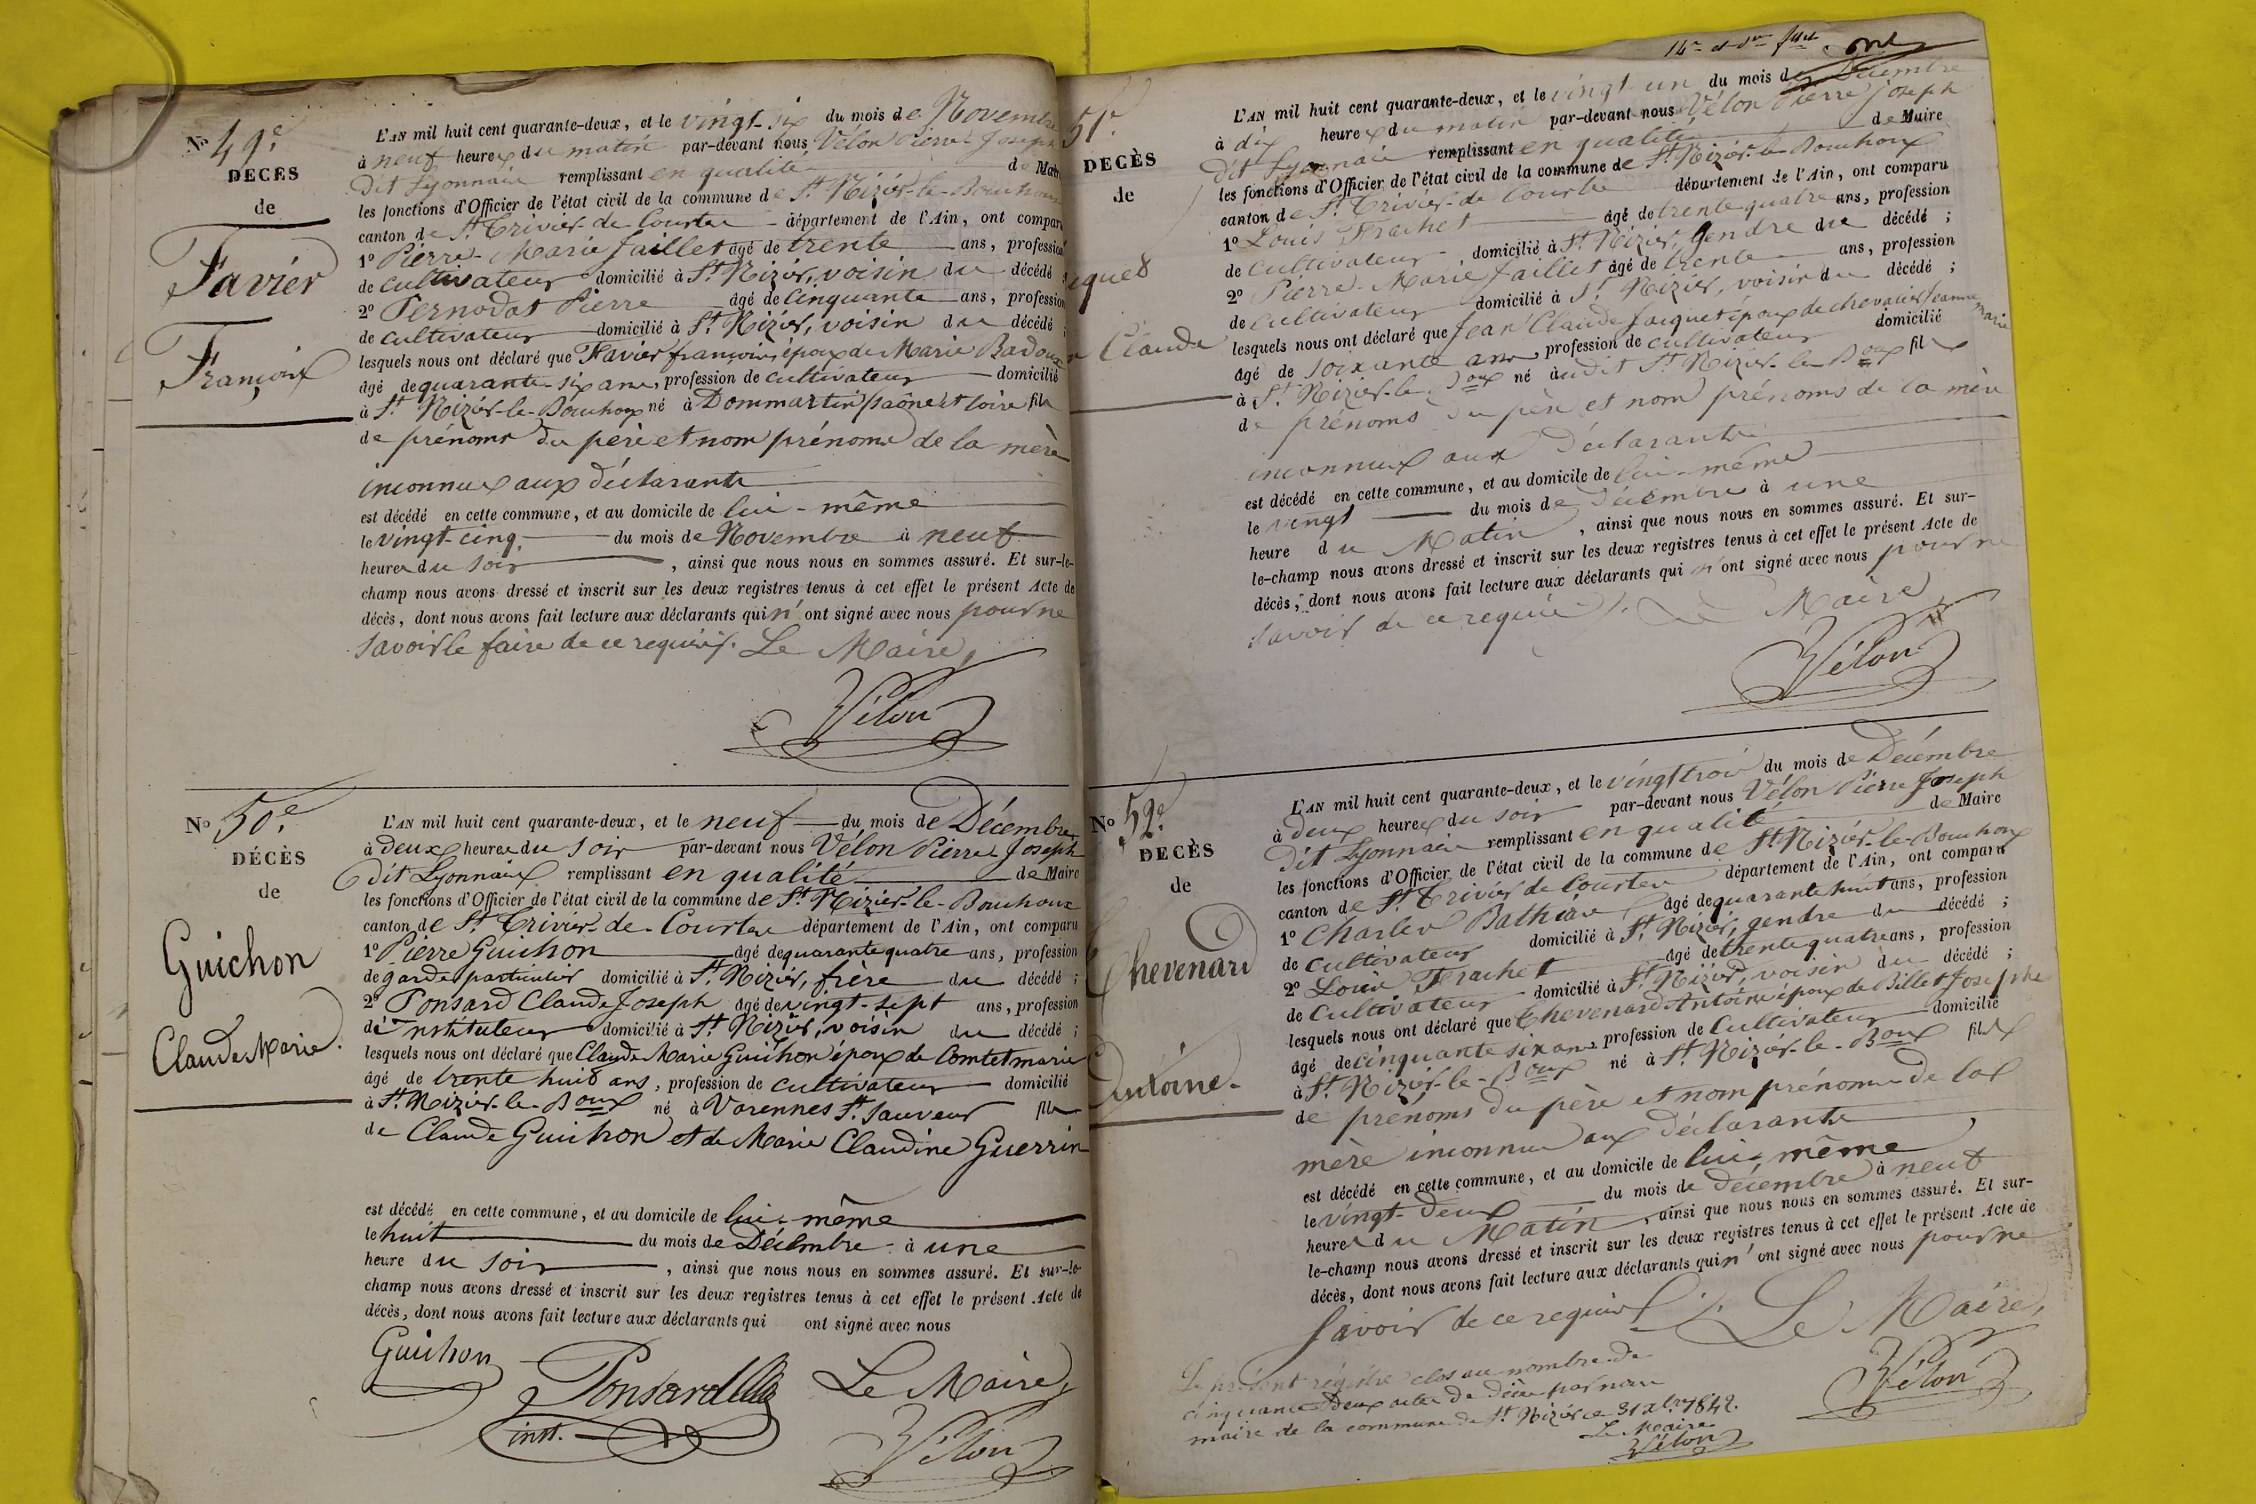 No 49.e
DÉCÈS
de
Favier
François
L'AN mil huit cent quarante-deux, et le vingt-six du mois de Novembre
à neuf heures du matin par-devant nous Vélon Pierre Joseph
dit Lyonnais remplissant en qualité de Maire
les fonctions d'Officier de l'état civil de la commune de St. Nizier-le-Bouchoux
canton de St. Trivier-de-Courtes département de l'Ain, ont comparu
1o Pierre-Marie Jaillet âgé de trente ans, profession
de cultivateur domicilié à St. Nizier, voisin du décédé ;
2o Pernodat Pierre âgé de cinquante ans, profession
de cultivateur domicilié à St. Nizier, voisin du décédé ;
lesquels nous ont déclaré que Favier françois époux de Marie Badoux
âgé de quarante-six ans, profession de cultivateur domicilié
à St. Nizier-le-Bouhoux né à Dommartin (saône et loire fils
de prénoms du père et nom prénoms de la mère
inconnus aux déclarants
est décédé en cette commune, et au domicile de lui-même
le vingt-cinq du mois de Novembre à neuf
heures du soir , ainsi que nous nous en sommes assuré. Et sur-le-
champ nous avons dressé et inscrit sur les deux registres tenus à cet effet le présent Acte de
décès, dont nous avons fait lecture aux déclarants qui n'ont signé avec nous pour ne
savoir le faire de ce requis. Le Maire,
Vélon
No 50.e
DÉCÈS
de
Guichon
Claude Marie.
L'AN mil huit cent quarante-deux, et le neuf du mois de Décembre
à deux heures du soir par-devant nous Vélon Pierre Joseph
dit Lyonnais remplissant en qualité de Maire
les fonctions d'Officier de l'état civil de la commune de St. Nizier-le-Bouchoux
canton de St. Trivier-de-Courtes département de l'Ain, ont comparu
1o Pierre Guichon âgé de quarante quatre ans, profession
de garde particulier domicilié à St. Nizier, frère du décédé ;
2o Ponsard Claude Joseph âgé de vingt-sept ans, profession
d'instituteur domicilié à St. Nizier, voisin du décédé ;
lesquels nous ont déclaré que Claude Marie Guichon époux de Comtet marie
âgé de trente huit ans, profession de cultivateur domicilié
à St. Nizier-le-Boux né à Varennes St. Sauveur fils
de Claude Guichon et de Marie Claudine Guerrin
est décédé en cette commune, et au domicile de lui-même
le huit du mois de Décembre à une
heure du soir , ainsi que nous nous en sommes assuré. Et sur-le-
champ nous avons dressé et inscrit sur les deux registres tenus à cet effet le présent Acte de
décès, dont nous avons fait lecture aux déclarants qui ont signé avec nous
Guichon
Ponsard
inst.
Le Maire,
Vélon
51e
DECÈS
de
Claude
L'AN mil huit cent quarante-deux, et le vingt un du mois de Décembre
à dix heures du matin par-devant nous Vélon Pierre Joseph
dit Lyonnais remplissant en qualité de Maire
les fonctions d'Officier de l'état civil de la commune de St. Nizier-le-Bouchoux
canton de St. Trivier-de Courtes département de l'Ain, ont comparu
1o Louis Frachet âgé de trente quatre ans, profession
de cultivateur, domicilié à St. Nizier, gendre du décédé ;
2o Pierre-Marie Jaillet âgé de trente ans, profession
de cultivateur domicilié à St. Nizier, voisin du décédé ;
lesquels nous ont déclaré que Jean Claude Jacquet époux de chevalier Jeanne Marie
âgé de soixante ans profession de cultivateur domicilié
à St. Nizier-le-Boux né audit St. Nizier-le-Boux fils
de prénoms du père et nom prénoms de la mère
inconnus aux déclarants
est décédé en cette commune, et au domicile de lui-même
le vingt du mois de décembre à une
heure du Matin , ainsi que nous nous en sommes assuré. Et sur-
le-champ nous avons dressé et inscrit sur les deux registres tenus à cet effet le présent Acte de
décès, dont nous avons fait lecture aux déclarants qui n'ont signé avec nous pour ne
savoir de ce requis. Le Maire,
Vélon
No 52.e
DECÈS
de
Chevenard
Antoine.
L'AN mil huit cent quarante-deux, et le vingt trois du mois de Décembre
à deux heures du soir par-devant nous Vélon Pierre Joseph
dit Lyonnais remplissant en qualité de Maire
les fonctions d'Officier de l'état civil de la commune de St. Nizier-le-Bouchoux
canton de St. Trivier de Courtes département de l'Ain, ont comparu
1o Charles Bathias âgé de quarante huit ans, profession
de cultivateur domicilié à St. Nizier, gendre du décédé ;
2o Louis Frachet âgé de trente quatre ans, profession
de cultivateur domicilié à St. Nizier, voisin du décédé ;
lesquels nous ont déclaré que Chevenard Antoine époux de Billet Josephe
âgé de cinquante six ans profession de Cultivateur domicilié
à St. Nizier-le-Boux né à St. Nizier-le-Boux fils
de prénoms du père et nom prénoms de la
mère inconnus aux déclarants
est décédé en cette commune, et au domicile de lui-même
le vingt-deux du mois de décembre à neuf
heures du Matin , ainsi que nous nous en sommes assuré. Et sur-
le-champ nous avons dressé et inscrit sur les deux registres tenus à cet effet le présent Acte de
décès, dont nous avons fait lecture aux déclarants qui n'ont signé avec nous pour ne
savoir de ce requis. Le Maire,
Vélon
Le présent régistre clos au nombre de
cinquante deux actes de décès par nous
maire de la commune de St. Nizier ce 31 xbre 1842.
Le Maire
Vélon